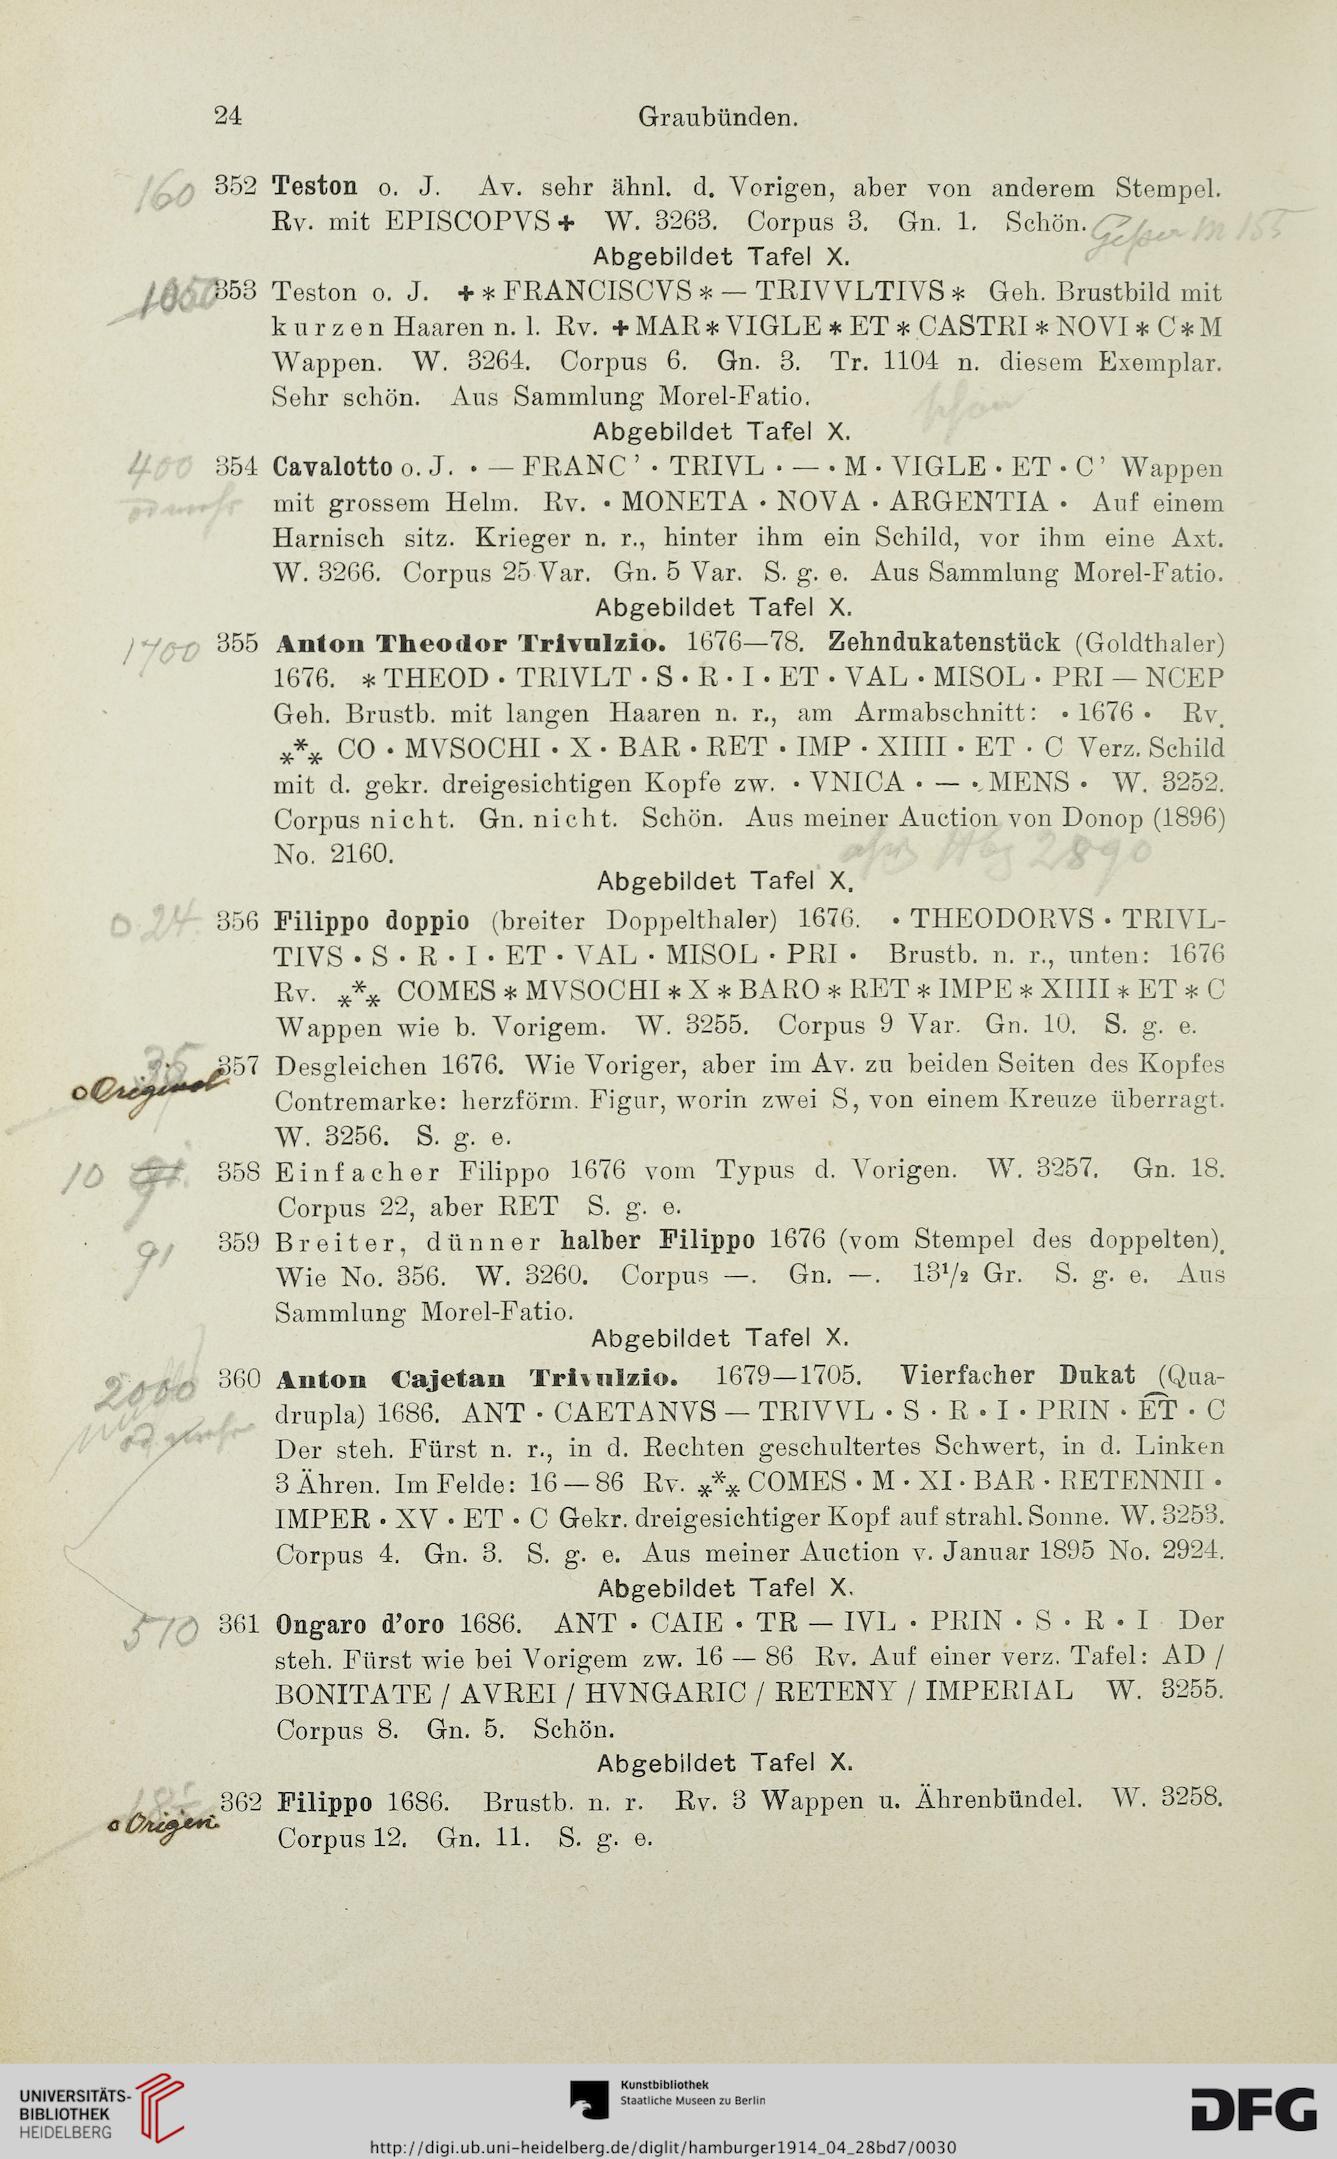 24 Graubünden.
160 352 Teston o. J. Av. sehr ähnl. d. Vorigen, aber von anderem Stempel.
Rv. mit EPISCOPVS + W. 3263. Corpus 3. Gn. 1. Schön.
Abgebildet Tafel X.
1050 353 Teston o. J. + * FRANCISCVS * — TRIVVLTIVS * Geh. Brustbild mit
kurzen Haaren n. l. Rv. + MAR * VIGLE * ET * CASTRI * NOVI * C * M
Wappen. W. 3264. Corpus 6. Gn. 3. Tr. 1104 n. diesem Exemplar.
Sehr schön. Aus Sammlung Morel-Fatio.
schön
Abgebildet Tafel X.
400 354 Cavalotto o. J. • — FRANC ' • TRIVL • — • M • VIGLE • ET • C ' Wappen
od mehr mit grossem Helm. Rv. • MONETA • NOVA • ARGENTIA • Auf einem
Harnisch sitz. Krieger n. r., hinter ihm ein Schild, vor ihm eine Axt.
W. 3266. Corpus 25 Var. Gn. 5 Var. S. g. e. Aus Sammlung Morel-Fatio.
Abgebildet Tafel X.
1700 355 Anton Theodor Trivulzio. 1676—78. Zehndukatenstück (Goldthaler)
1676. * THEOD • TRIVLT • S • R • I • ET • VAL • MISOL • PRI — NCEP
Geh. Brustb. mit langen Haaren n. r., am Armabschnitt: • 1676 • Rv.
*** CO • MVSOCHI • X • BAR • RET • IMP • XIIII • ET • C Verz. Schild
mit d. gekr. dreigesichtigen Kopfe zw. • VNICA • — • MENS • W. 3252.
Corpus nicht. Gn. nicht. Schön. Aus meiner Auction von Donop (1896)
No. 2160.
2890
Abgebildet Tafel X.
24 356 Filippo doppio (breiter Doppelthaler) 1676. • THEODORVS • TRIVL-
TIVS • S • R • I • ET • VAL • MISOL • PRI • Brustb. n. r., unten: 1676
Rv. *** COMES * MVSOCHI * X * BARO * RET * IMPE * XIIII * ET * C
Wappen wie b. Vorigem. W. 3255. Corpus 9 Var. Gn. 10. S. g. e.
35 357 Desgleichen 1676. Wie Voriger, aber im Av. zu beiden Seiten des Kopfes
o Original Contremarke: herzförm. Figur, worin zwei S, von einem Kreuze überragt.
W. 3256. S. g. e.
10 358 Einfacher Filippo 1676 vom Typus d. Vorigen. W. 3257. Gn. 18.
Corpus 22, aber RET S. g. e.
91 359 Breiter, dünner halber Filippo 1676 (vom Stempel des doppelten).
Wie No. 356. W. 3260. Corpus —. Gn. —. 13½ Gr. S. g. e. Aus
Sammlung Morel-Fatio.
Abgebildet Tafel X.
2000 360 Anton Cajetan Trivulzio. 1679—1705. Vierfacher Dukat (Qua-
od. mehr drupla) 1686. ANT • CAETANVS — TRIVVL • S • R • I • PRIN • ET • C
Der steh. Fürst n. r., in d. Rechten geschultertes Schwert, in d. Linken
3 Ähren. Im Felde: 16 — 86 Rv. *** COMES • M • XI • BAR • RETENNII •
IMPER • XV • ET • C Gekr. dreigesichtiger Kopf auf strahl. Sonne. W. 3253.
Corpus 4. Gn. 3. S. g. e. Aus meiner Auction v. Januar 1895 No. 2924.
Abgebildet Tafel X.
510 361 Ongaro d'oro 1686. ANT • CAIE • TR — IVL • PRIN • S • R • I Der
steh. Fürst wie bei Vorigem zw. 16 — 86 Rv. Auf einer verz. Tafel: AD /
BONITATE / AVREI / HVNGARIC / RETENY / IMPERIAL W. 3255.
Corpus 8. Gn. 5. Schön.
Abgebildet Tafel X.
362 Filippo 1686. Brustb. n. r. Rv. 3 Wappen u. Ährenbündel. W. 3258.
o Origin. Corpus 12. Gn. 11. S. g. e.
UNIVERSITÄTS-
BIBLIOTHEK
HEIDELBERG
Kunstbibliothek
Staatliche Museen zu Berlin
DFG
http://digi.ub.uni-heidelberg.de/diglit/hamburger1914_04_28bd7/0030